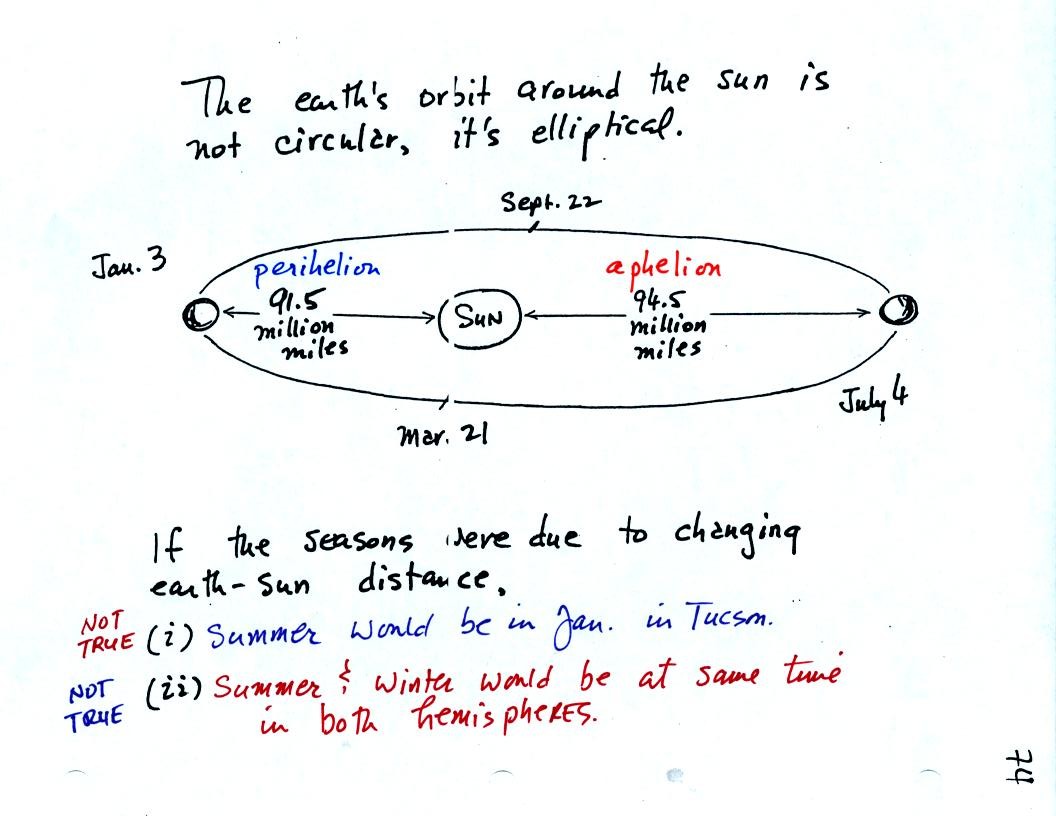 The earth's orbit around the sun is
not circular, it's elliptical.
Sept. 22
Jan. 3
perihelion
91.5
million
miles
SUN
aphelion
94.5
million
miles
July 4
Mar. 21
If the seasons were due to changing
earth-sun distance,
NOT
TRUE
(i) Summer would be in Jan. in Tucson.
NOT
TRUE
(ii) Summer & Winter would be at same time
in both hemispheres.
74